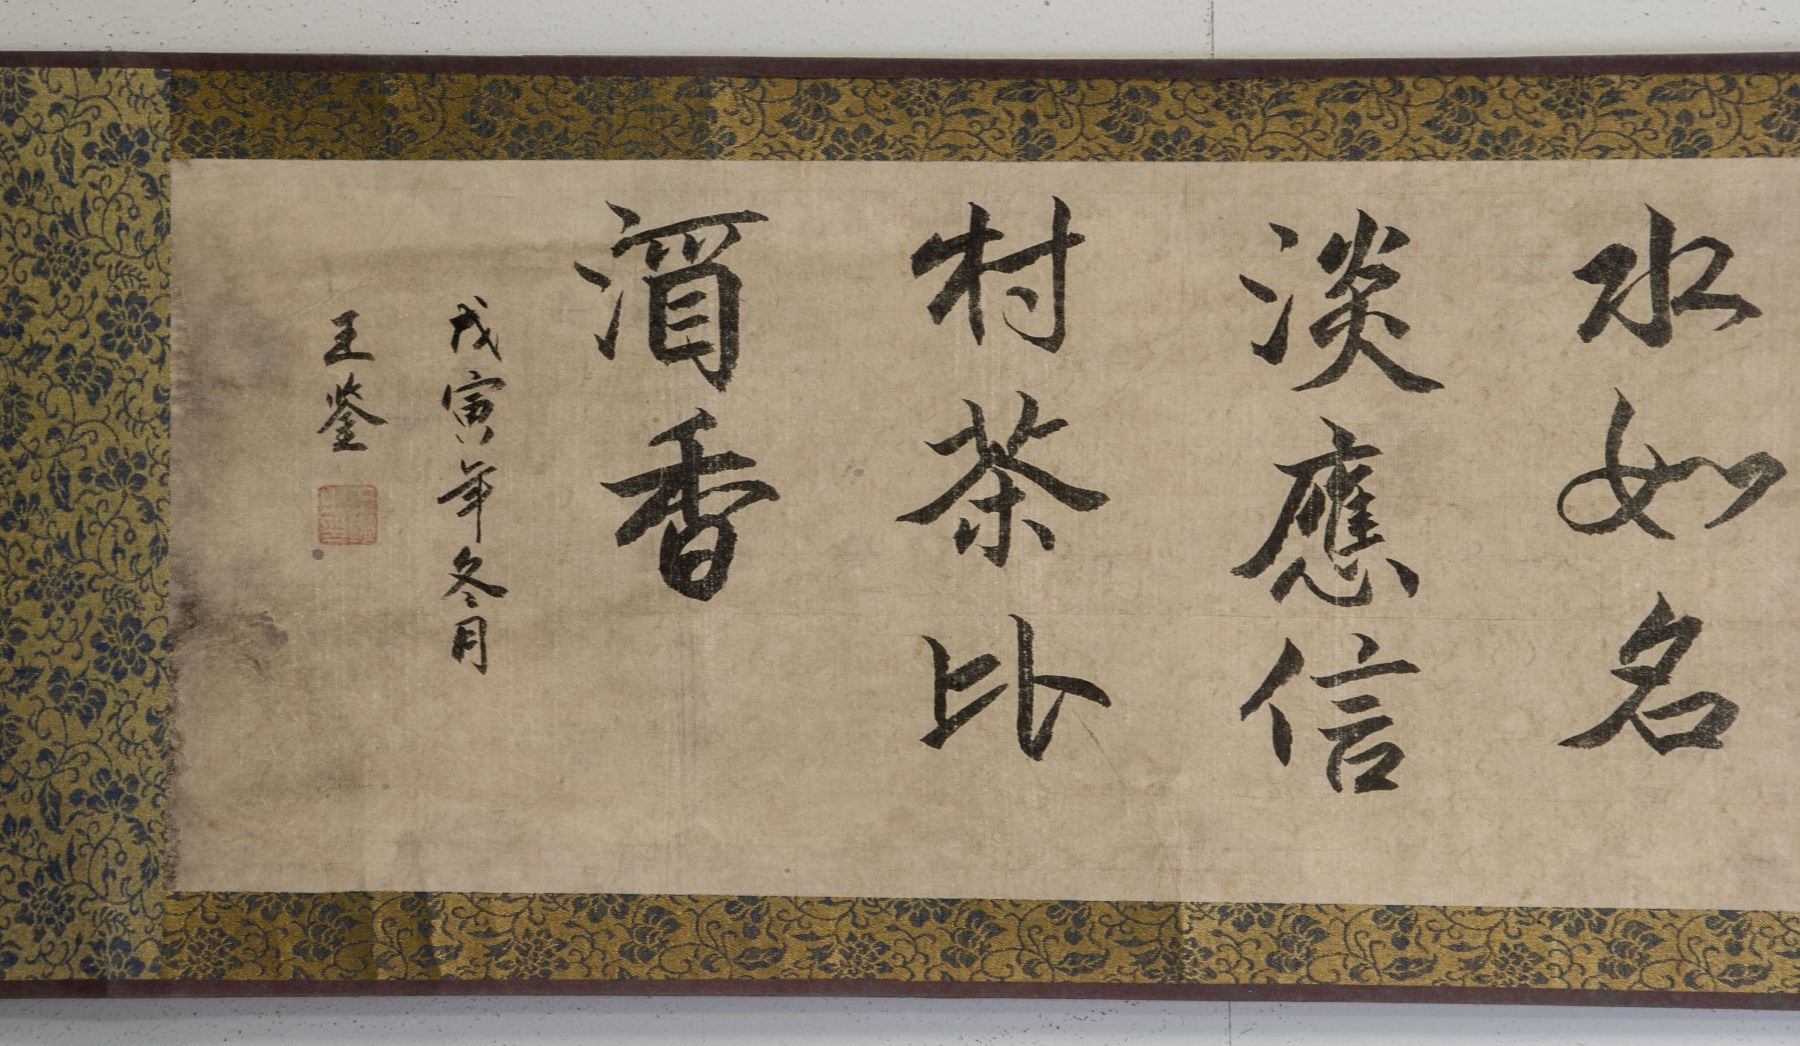 水如名
淡應信
村茶比
酒香
戊寅年冬月
王鑒